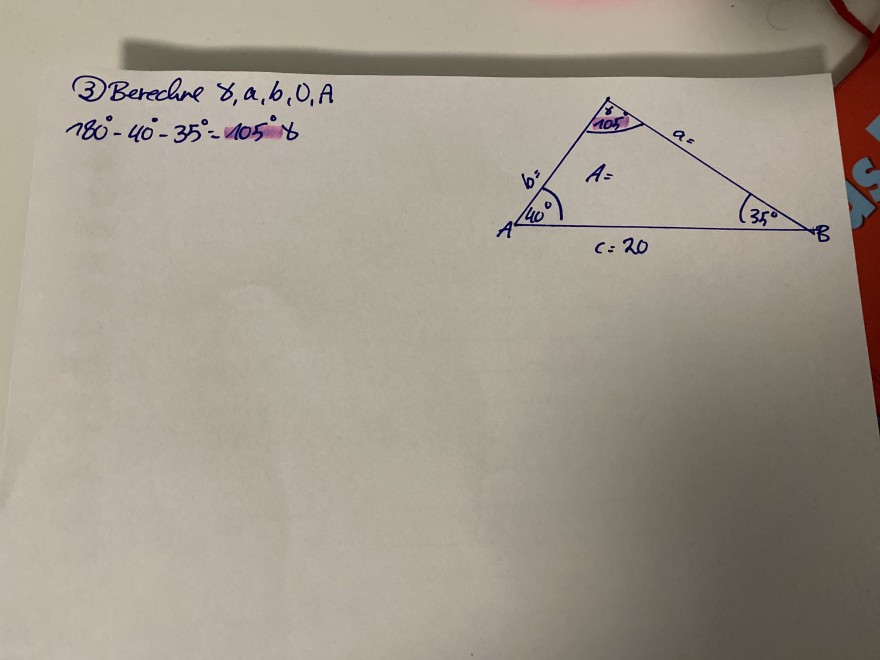 ③ Berechne γ, a, b, U, A
180° - 40° - 35° = 105° γ
γ
105°
a =
b =
A =
40°
35°
A
B
c = 20
as